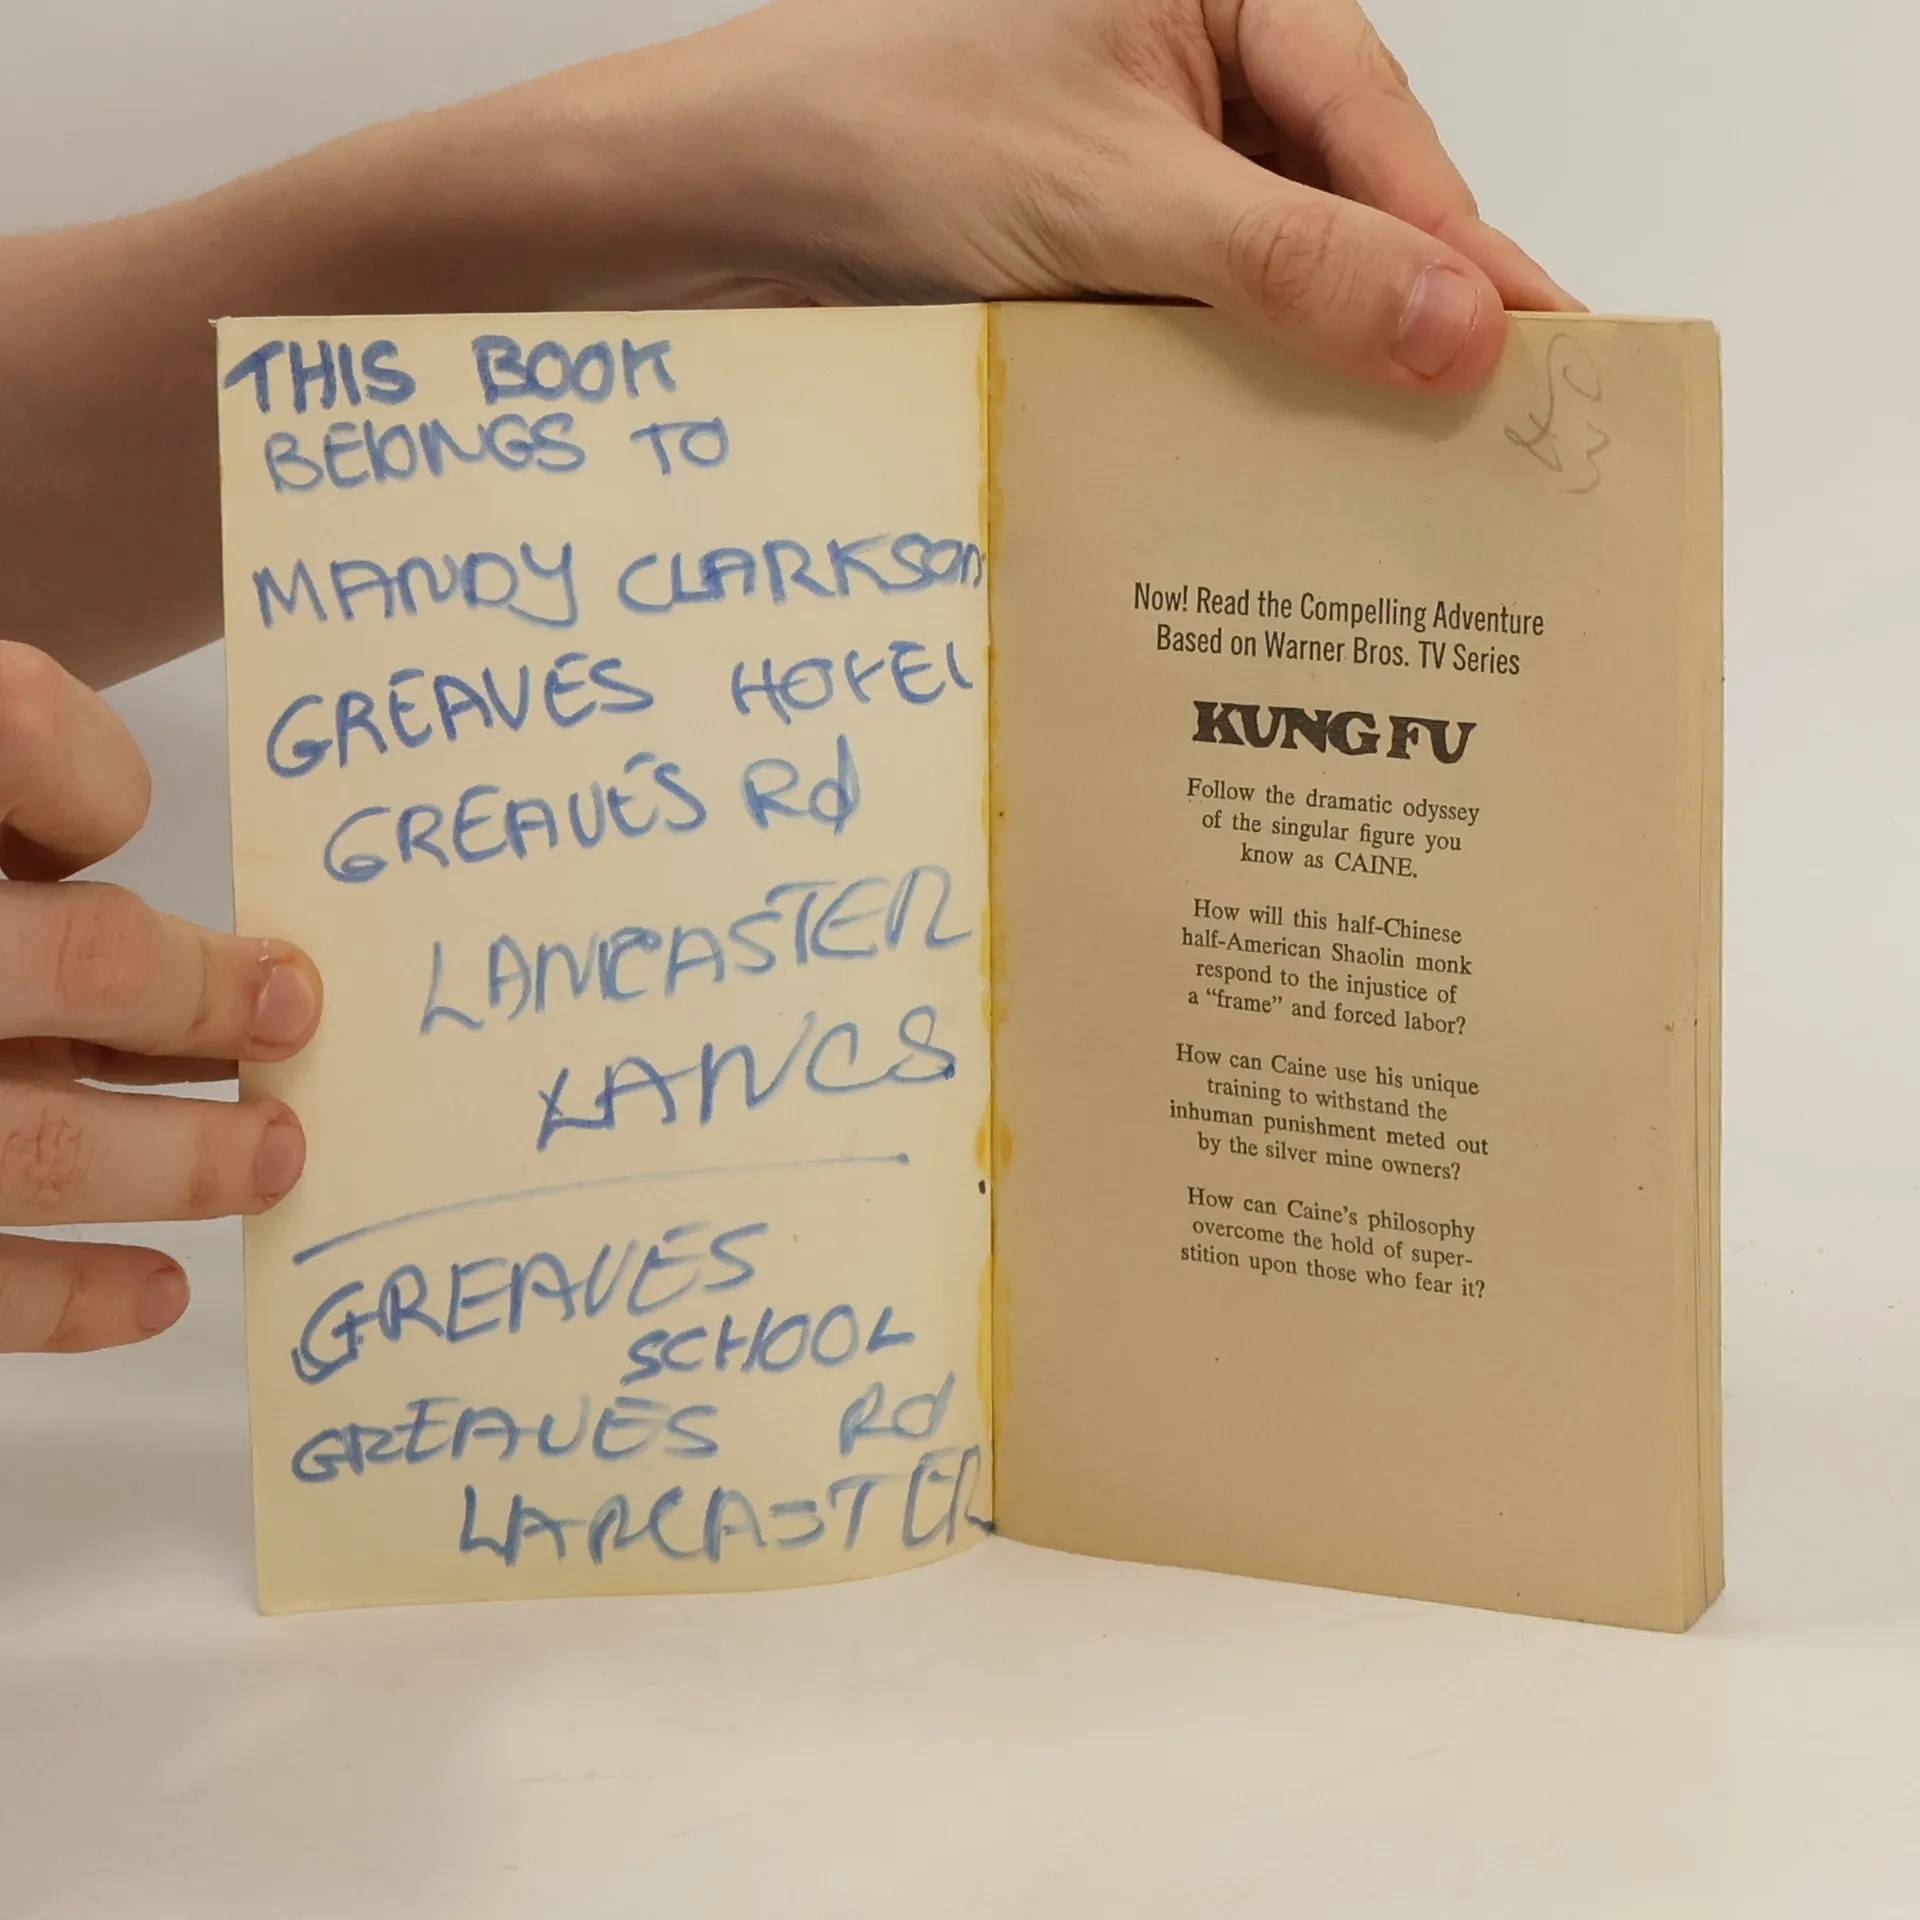 THIS BOOK
BELONGS TO
MANDY CLARKSON
GREAVES HOTEL
GREAVES Rd
LANCASTER
LANCS
GREAVES
SCHOOL
GREAVES Rd
LANCASTER
Now! Read the Compelling Adventure
Based on Warner Bros. TV Series
KUNG FU
Follow the dramatic odyssey
of the singular figure you
know as CAINE.
How will this half-Chinese
half-American Shaolin monk
respond to the injustice of
a “frame” and forced labor?
How can Caine use his unique
training to withstand the
inhuman punishment meted out
by the silver mine owners?
How can Caine’s philosophy
overcome the hold of super-
stition upon those who fear it?